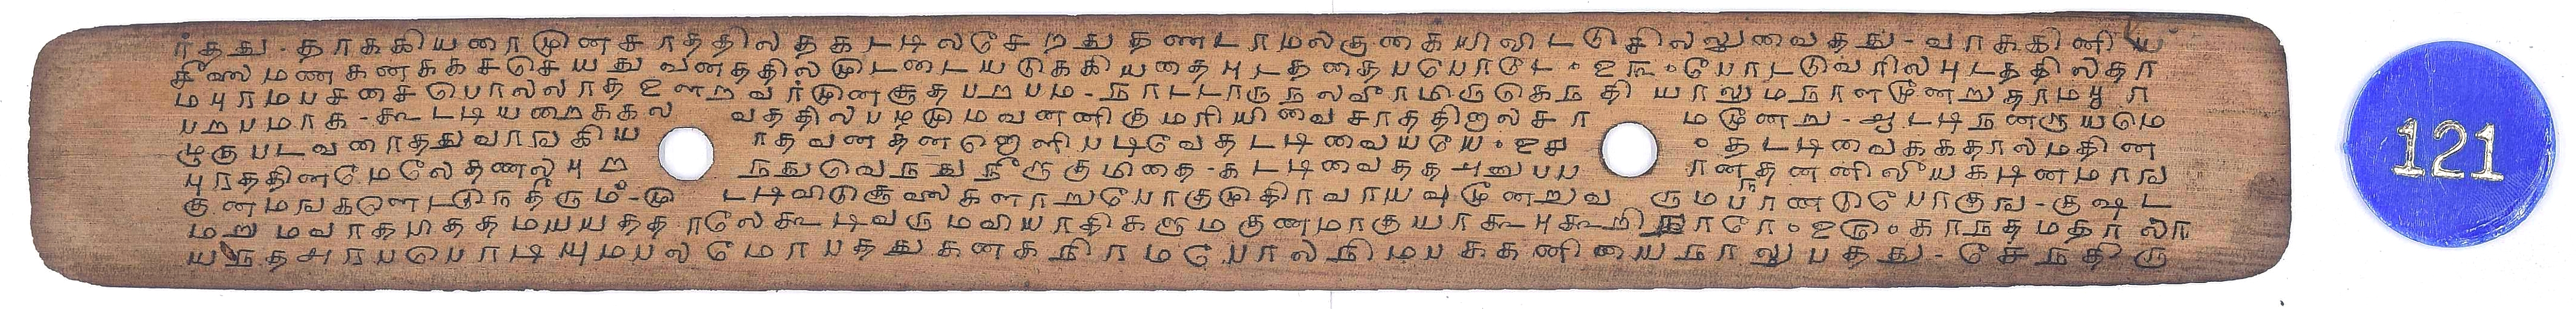 ர்த்து - தாககியரைமூனசாததிலதகடடிலசேறது தணடாமலகுகையிலிடடுசிலலுவைதது - வாசுகினிய
சீலைமண கனககசசெயது வனததிலமூடடையடுககியதைபுடததைபபோடே ௦ உ௩ ௦ போடடுவாிலபுடததிலதா
மபுரமபசசைபொலலாத உளறவாமூனசூதபறபம - நாடடாருநலவீராமிருடுகெநதி யாலுமநாளமூனறுதாமபூரா
பறபமாக - கூடடியறைககல வததிலபழமுமவனனிகுமரியிவைசாததிறலசா மூனேறு - ஆடடிநனருயமெ
முகுபடவரைததுவாஙகிய ரதவனதனஜெனிபடிவேதடடிவையயே ௦ உச ௦ தடடிவைககதாலமதின
புரததினமேலேதணலபுற நதுவெநதுநீறுகுமிதை - கடடிவைததஅனுபப ானதனனிலீயகடினமாஙு
குனமஙகளொடுநதீரும - மூ டடிவிடுசூலைகளாறுபோகுமூதிரவாயவுமூனறுவ ருமபாணடுபோகுங - குஷட
மறுமவாதபிததமயயததாலேகூடிவருமவியாதிகளுமகுணமாகுயாகூபுகூறினாரே ௦ உ௫ ௦ காநதமதாலா
யநதஅரபபொடியுமபலமோபததுகனகநிரமபோலநிமபககணியைநாலுபதது - சேநதிரு